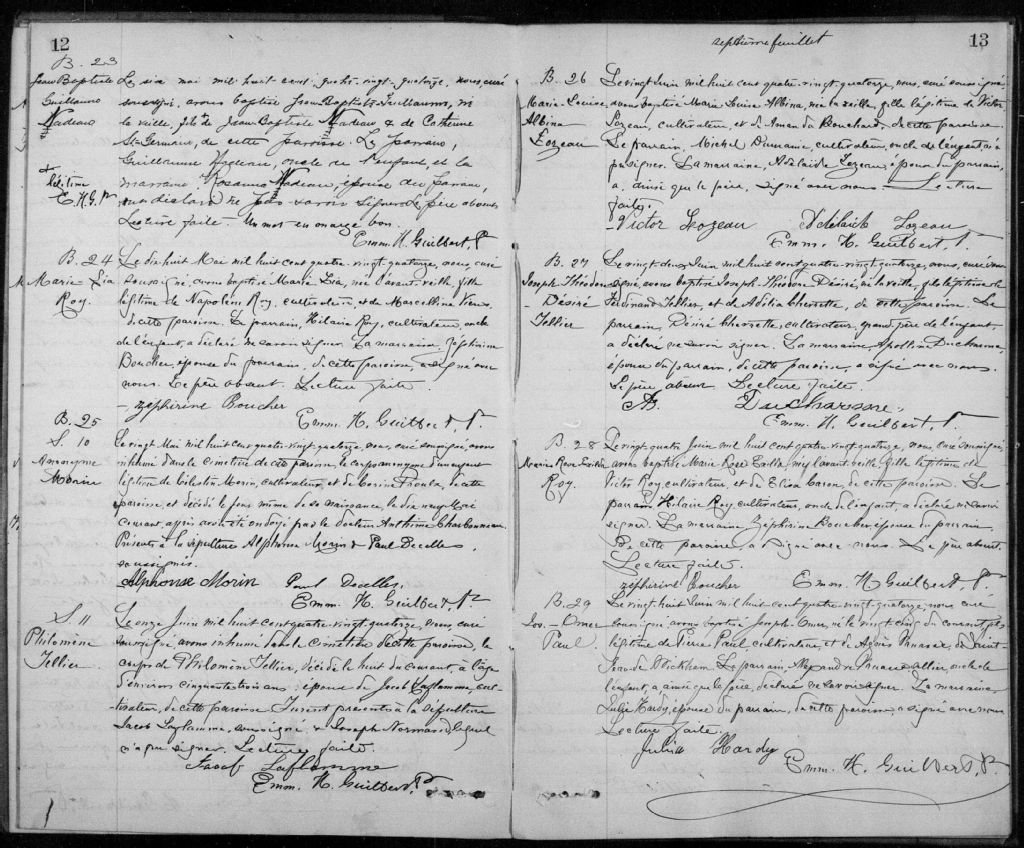 12
B. 23
Jean Baptiste
Guillaume
Nadeau
+ légitime
E. H. G. Ptr
Le six mai mil huit cent quatre-vingt-quatorze, nous, curé
soussigné, avons baptisé Jean Baptiste Guillaume, né
la veille, fils + de Jean Baptiste Nadeau & de Catherine
St-Germain, de cette paroisse. Le parrain,
Guillaume Nadeau, oncle de l'enfant, et la
marraine, Rosanna Nadeau, épouse du parrain,
ont déclaré ne savoir signer. Le père absent.
Lecture faite. Un mot en marge bon.
Emm. H. Guilbert, P.
B. 24
Marie Lia
Roy.
Le dix-huit Mai mil huit cent quatre-vingt-quatorze, nous, curé
soussigné, avons baptisé Marie Lia, née l'avant-veille, fille
légitime de Napoléon Roy, cultivateur, et de Marcelline
de cette paroisse. Le parrain, Hilaire Roy, cultivateur, oncle
de l'enfant, a déclaré ne savoir signer. La marraine, Zéphirine
Boucher, épouse du parrain, de cette paroisse, a signé avec
nous. Le père absent. Lecture faite.
Zéphirine Boucher
Emm. H. Guilbert, P.
B. 25
S. 10
Anonyme
Morin
Le vingt Mai mil huit cent quatre-vingt-quatorze, nous, curé soussigné, avons
inhumé dans le cimetière de cette paroisse, le corps anonyme d'un enfant
légitime de Célestin Morin, cultivateur, et de de cette
paroisse, et décédé le jour même de sa naissance, le dix-neuf Mai
courant, après avoir été ondoyé par le docteur Anthime Charbonneau.
Présents à la sépulture Alphonse Morin & Paul Decelles,
soussignés.
Alphonse Morin Paul Decelles,
Emm. H. Guilbert, P.
S. 11
Philomène
Tellier
Le onze Juin mil huit cent quatre-vingt-quatorze, nous curé
soussigné avons inhumé dans le cimetière de cette paroisse, le
corps de Philomène Tellier, décédée le huit du courant, à l'âge
d'environ cinquante-trois ans, épouse de Jacob Laflamme, cul-
tivateur, de cette paroisse. Furent présents à la sépulture
Jacob Laflamme, soussigné, & Joseph Normand, lequel
n'a pu signer. Lecture faite.
Jacob Laflamme
Emm. H. Guilbert, P.
septième feuillet
13
B. 26
Marie-Louise
Albina
Lozeau
Le vingt Juin mil huit cent quatre-vingt-quatorze, nous, curé soussigné,
avons baptisé Marie Louise Albina, née la veille, fille légitime de Victor
Lozeau, cultivateur, et de Amanda Bouchard, de cette paroisse.
Le parrain, Michel cultivateur, oncle de l'enfant, n'a
pu signer. La marraine, Adélaïde Lozeau, épouse du parrain,
a, ainsi que le père, signé avec nous. Lecture
faite.
Victor Lozeau Adelaide Lozeau
Emm. H. Guilbert, P.
B. 27
Joseph Théodore
Désiré
Tellier
Le vingt-deux Juin mil huit cent quatre-vingt-quatorze, nous, curé sous-
signé, avons baptisé Joseph Théodore Désiré, né la veille, fils légitime de
Ferdinand Tellier, et de Adélia Chevrette, de cette paroisse. Le
parrain, Désiré Chevrette, cultivateur, grand-père de l'enfant,
a déclaré ne savoir signer. La marraine, Apolline Ducharme,
épouse du parrain, de cette paroisse, a signé avec nous.
Le père absent Lecture faite.
Ap. Ducharme
Emm. H. Guilbert, P.
B. 28
Marie Rose
Roy.
Le vingt-quatre Juin mil huit cent quatre-vingt-quatorze, nous, curé soussigné,
avons baptisé Marie Rose née l'avant-veille, fille légitime de
Victor Roy, cultivateur, et de Elisa Caron, de cette paroisse. Le
parrain, Hilaire Roy, cultivateur, oncle de l'enfant, a déclaré ne savoir
signer. La marraine Zéphirine Boucher, épouse du parrain,
de cette paroisse, a signé avec nous. Le père absent.
Lecture faite.
Zéphirine Boucher Emm. H. Guilbert, P.
B. 29
Jos. - Omer
Paul
Le vingt-huit Juin mil huit cent quatre-vingt-quatorze, nous curé
soussigné avons baptisé Joseph-Omer, né le vingt-cinq du courant, fils
légitime de Pierre Paul, cultivateur, et de Agnès de Saint
de Wickham. Le parrain, Alexandre oncle de
l'enfant, a, ainsi que le père, déclaré ne savoir signer. La marraine,
Julie Hardy, épouse du parrain, de cette paroisse, a signé avec nous.
Lecture faite.
Julia Hardy
Emm. H. Guilbert, P.